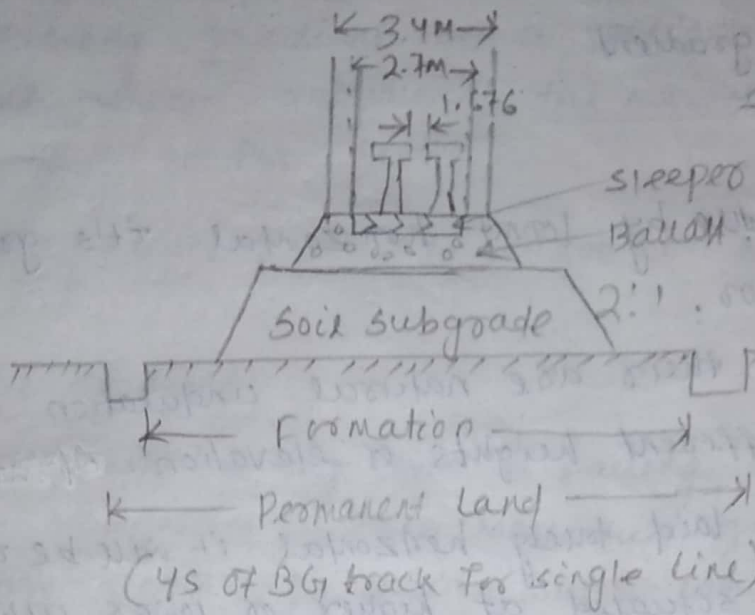 3.4M
2.7m
1.676
Sleeper
Ballast
2:1
Soil subgrade
Formation
Permanent Land
(YS of BG track for single line)